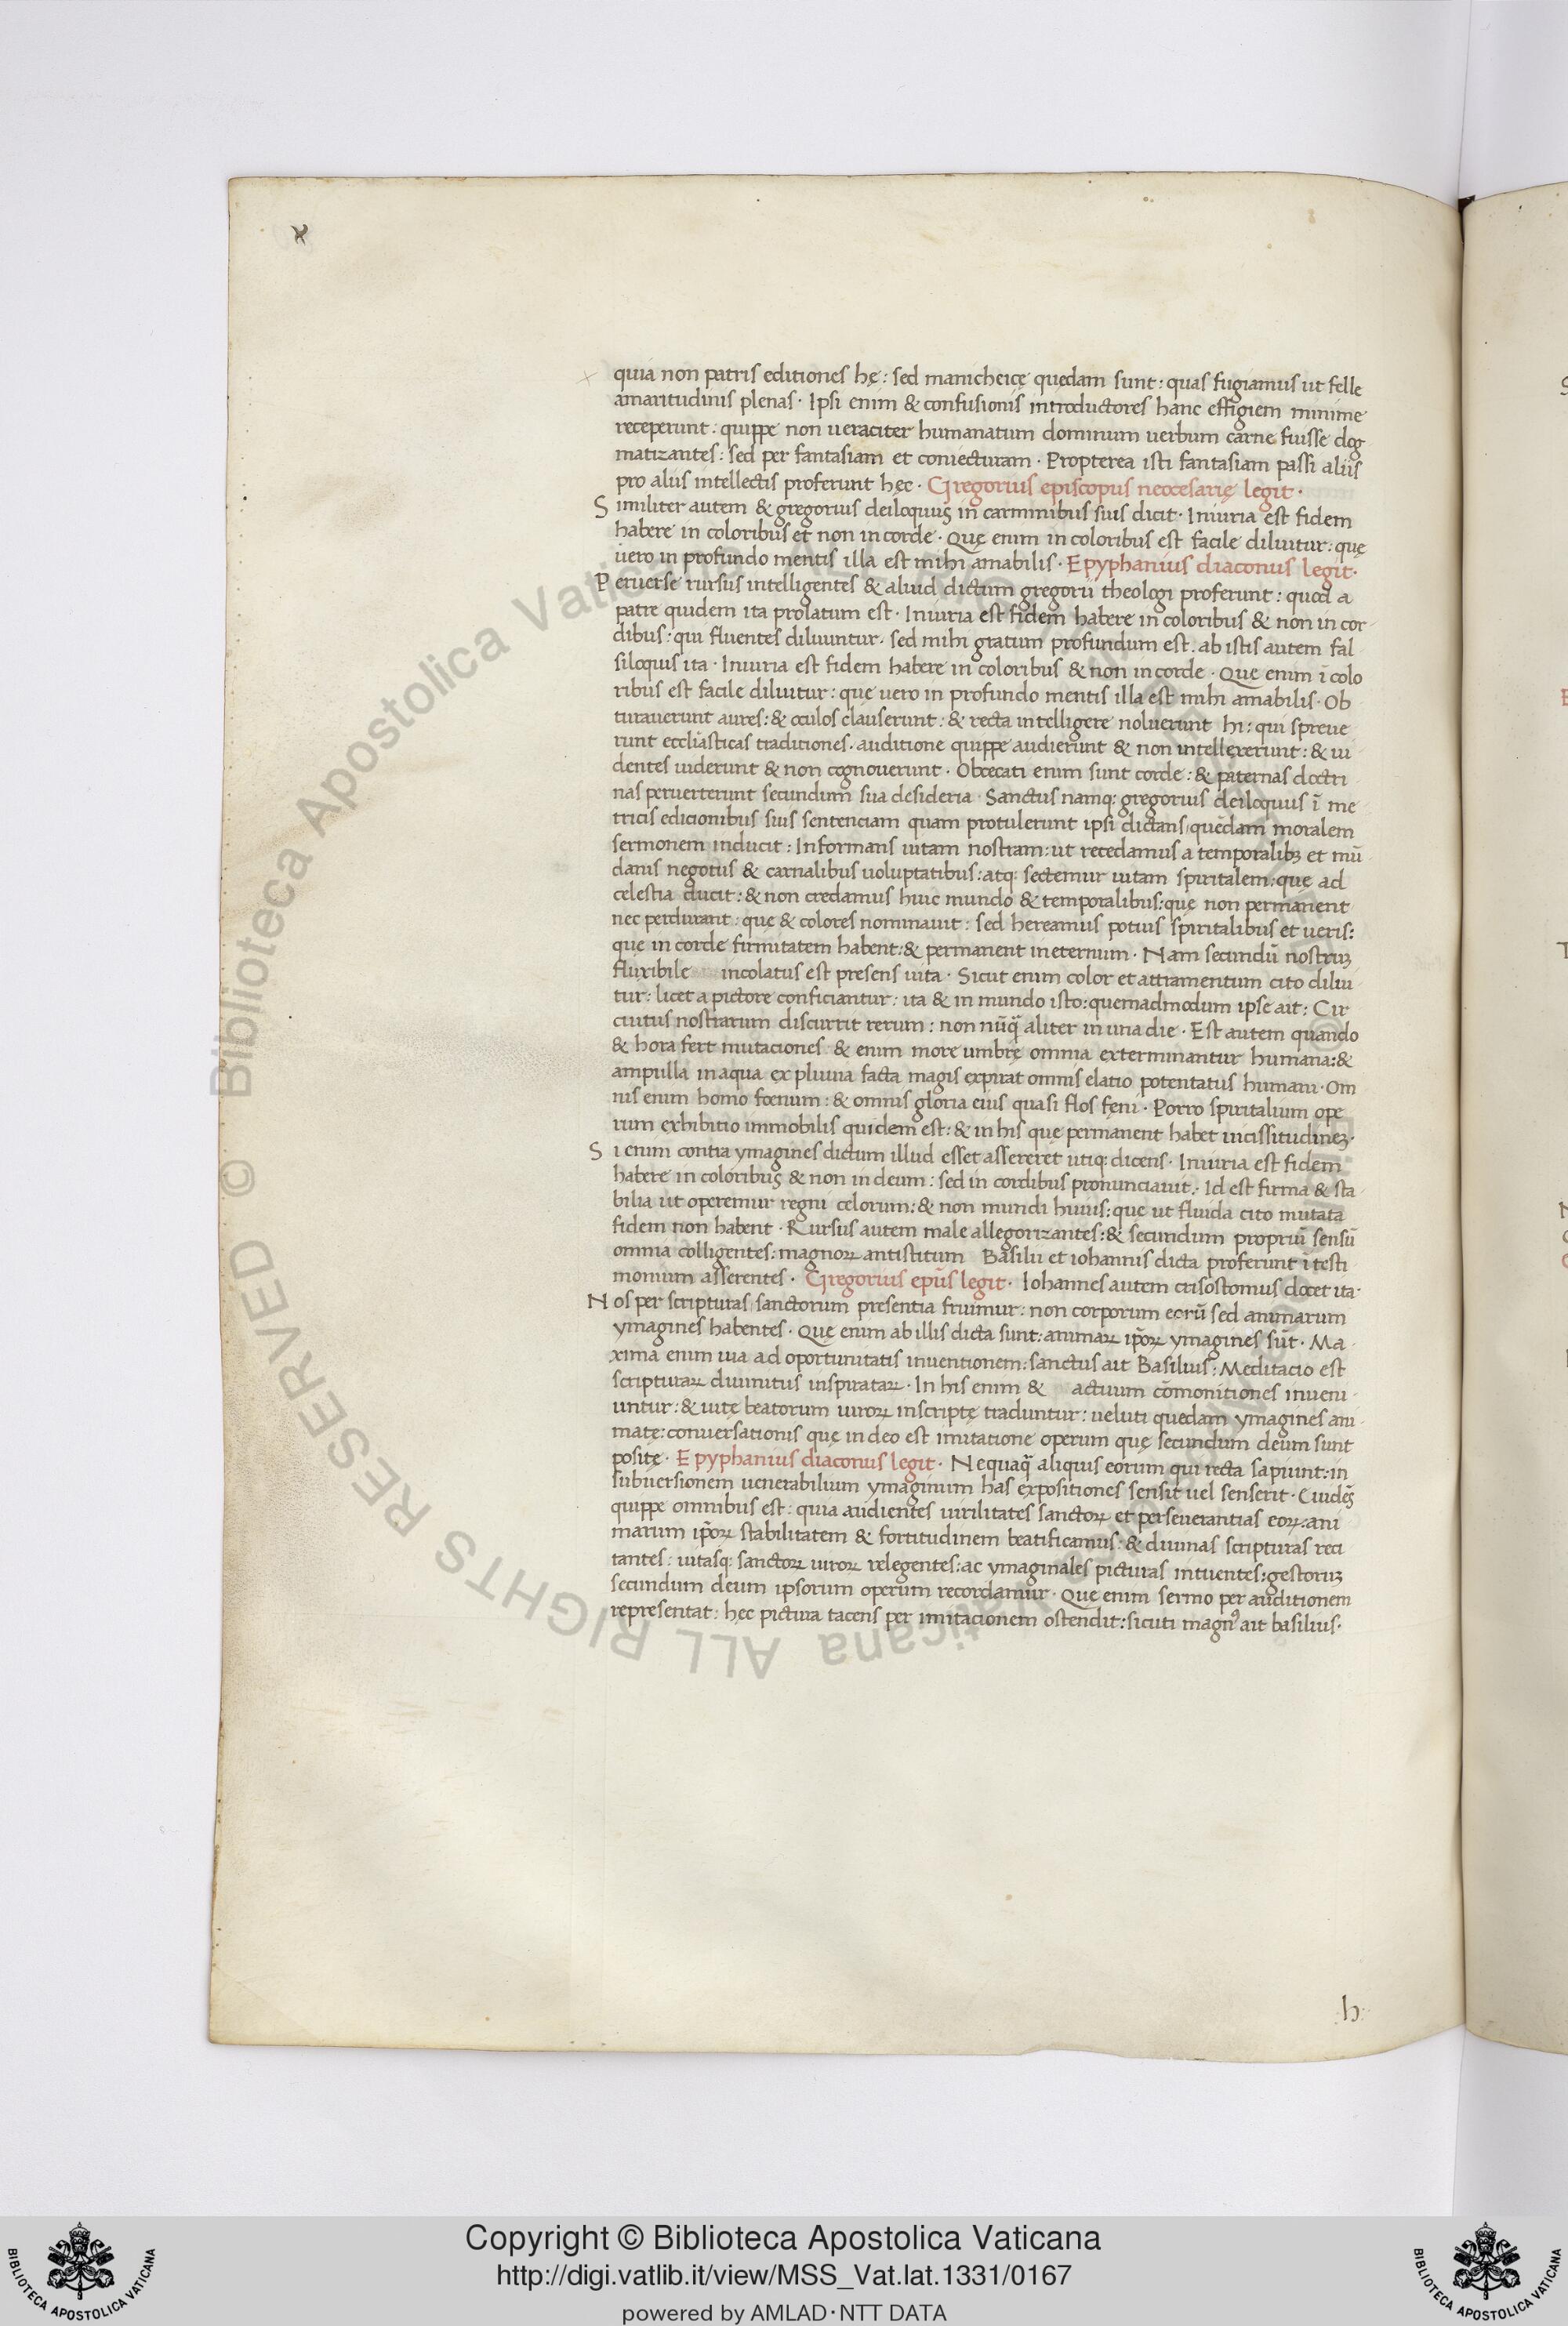 quia non patris editiones hę: sed manicheicę quędam sunt: quas fugiamus ut felle
amaritudinis plenas · Ipsi enim & confusionis introductores hanc effigiem minime
receperunt: quippe non ueraciter humanatum dominum uerbum carne fuisse dog
matizantes: sed per fantasiam et coniecturam · Propterea isti fantasiam passi aliis
pro aliis intellectis proferunt hęc · Gregorius episcopus neocesarię legit ·
Similiter autem & gregorius deiloquus in carminibus suis dicit · Iniuria est fidem
habere in coloribus et non in corde · Quę enim in coloribus est facile diluitur: quę
uero in profundo mentis illa est mihi amabilis · Epyphanius diaconus legit ·
Peruerse rursus intelligentes & aliud dictum gregorii theologi proferunt: quod a
patre quidem ita prolatum est · Iniuria est fidem habere in coloribus & non in cor
dibus: qui fluentes diluuntur · sed mihi gratum profundum est. ab istis autem fal
siloquis ita · Iniuria est fidem habere in coloribus & non in corde · Quę enim ĩ colo
ribus est facile diluitur: quę uero in profundo mentis illa est mihi amabilis · Ob
turauerunt aures: & oculos clauserunt: & recta intelligere noluerunt hi: qui spreue
runt eccliasticas traditiones · auditione quippe audierunt & non intellexerunt: & ui
dentes uiderunt & non cognouerunt · Obcecati enim sunt corde: & paternas doctri
nas peruerterunt secundum sua desideria · Sanctus namq: gregorius deiloquus ĩ me
tricis edicionibus suis sentenciam quam protulerunt ipsi dictans quẽdam moralem
sermonem inducit: Informans uitam nostram: ut recedamus a temporalibꝫ et mũ
danis negotiis & carnalibus uoluptatibus: atq: sectemur uitam spiritalem: quę ad
celestia ducit: & non credamus huic mundo & temporalibus: quę non permanent
nec perdurant: que & colores nominauit: sed hereamus potius spiritalibus et ueris:
quę in corde firmitatem habent: & permanent in eternum · Nam secundũ nostrꝫ
fluxibile incolatus est presens uita · Sicut enim color et attramentum cito dilui
tur: licet a pictore conficiantur: ita & in mundo isto: quemadmodum ipse ait: Cir
cuitus nostrarum discurrit rerum: non nũq̃ aliter in una die · Est autem quando
& hora fert mutaciones & enim more umbrę omnia exterminantur humana: &
ampulla in aqua ex pluuia facta magis expirat omnis elatio potentatus humani · Om
nis enim homo fœnum: & omnis gloria eius quasi flos fęni · Porro spiritalium ope
rum exhibitio immobilis quidem est: & in his quę permanent habet uicissitudinęꝫ ·
Si enim contra ymagines dictum illud esset assereret utiq: dicens · Iniuria est fidem
habere in coloribus & non in deum: sed in cordibus pronunciauit · Id est firma & sta
bilia ut operemur regni celorum: & non mundi huius: que ut fluida cito mutata
fidem non habent · Rursus autem male allegorizantes: & secundum propriũ sensũ
omnia colligentes: magnoꝝ antistitum Basilii et iohannis dicta proferunt ĩ testi
monium asserentes · Gregorius ep̃us legit · Iohannes autem crisostomus docet ita ·
Nos per scripturas sanctorum presentia fruimur: non corporum eorũ sed animarum
ymagines habentes · Quę enim ab illis dicta sunt: animaꝝ ip̃oꝝ ymagines sũt · Ma
xima enim uia ad oportunitatis inuentionem: sanctus ait Basilius: Meditacio est
scripturaꝝ diuinitus inspirataꝝ · In his enim & actuum cõmonitiones inueni
untur: & uitę beatorum uiroꝝ inscriptę traduntur: ueluti quedam ymagines ani
matę: conuersationis quę in deo est imitatione operum quę secundum deum sunt
positę · Epyphanius diaconus legit · Nequaq̃ aliquis eorum qui recta sapiunt: in
subuersionem uenerabilium ymaginum has expositiones sensit uel senserit · Euidẽs
quippe omnibus est: quia audientes uirilitates sanctoꝝ et perseuerantias eoꝝ: ani
marum ip̃oꝝ stabilitatem & fortitudinem beatificamus: & diuinas scripturas reci
tantes: uitasq: sanctoꝝ uiroꝝ relegentes: ac ymaginales picturas intuentes: gestorꝫ
secundum deum ipsorum operum recordamur · Quę enim sermo per auditionem
representat: hęc pictura tacens per imitacionem ostendit: sicuti magnꝰ ait basilius ·
h
Copyright © Biblioteca Apostolica Vaticana
http://digi.vatlib.it/view/MSS_Vat.lat.1331/0167
powered by AMLAD·NTT DATA
BIBLIOTECA APOSTOLICA VATICANA
BIBLIOTECA APOSTOLICA VATICANA
© Biblioteca Apostolica Vaticana ALL RIGHTS RESERVED